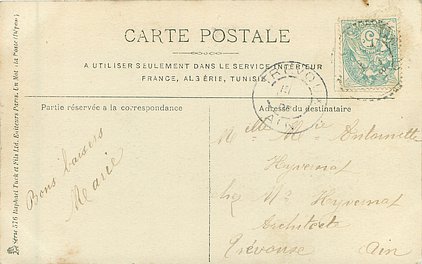 CARTE POSTALE
A UTILISER SEULEMENT DANS LE SERVICE INTÉRIEUR
FRANCE, ALGÉRIE, TUNISIE
Partie réservée a la correspondance
Adresse du destinataire
Bons baisers
Marie
Mlle Marie Antoinette
Hyvernat
chez Mr Hyvernat
Architecte
Trévoux Ain
TRÉVOUX
AIN
Série 576 Raphael Tuck et Fils Ltd. Editeurs Paris.